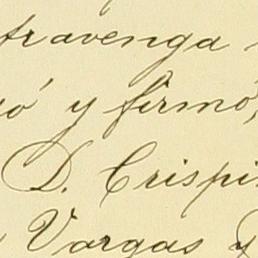 travenga
ó y firmó,
D. Crispi
Vargas y